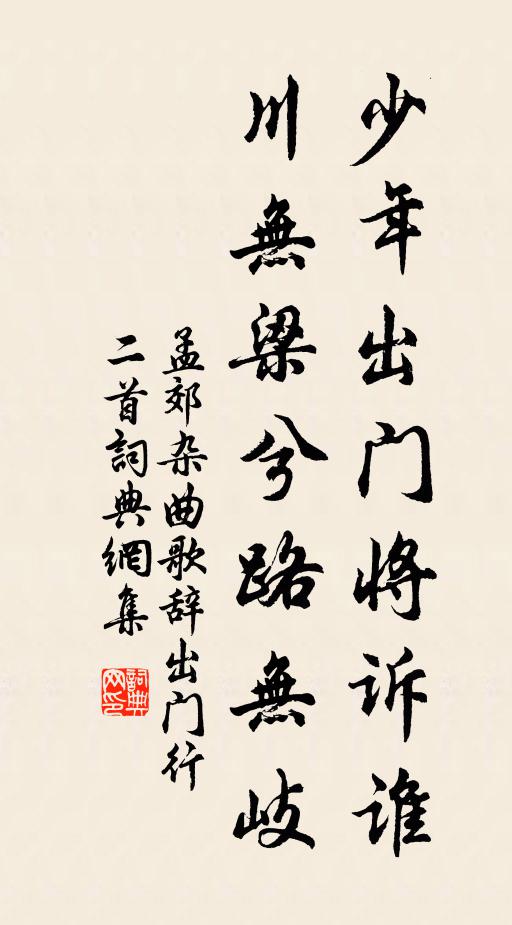 少年出门将诉谁
川無梁兮路無岐
孟郊杂曲歌辞出门行
二首詞典網集
詞典网印